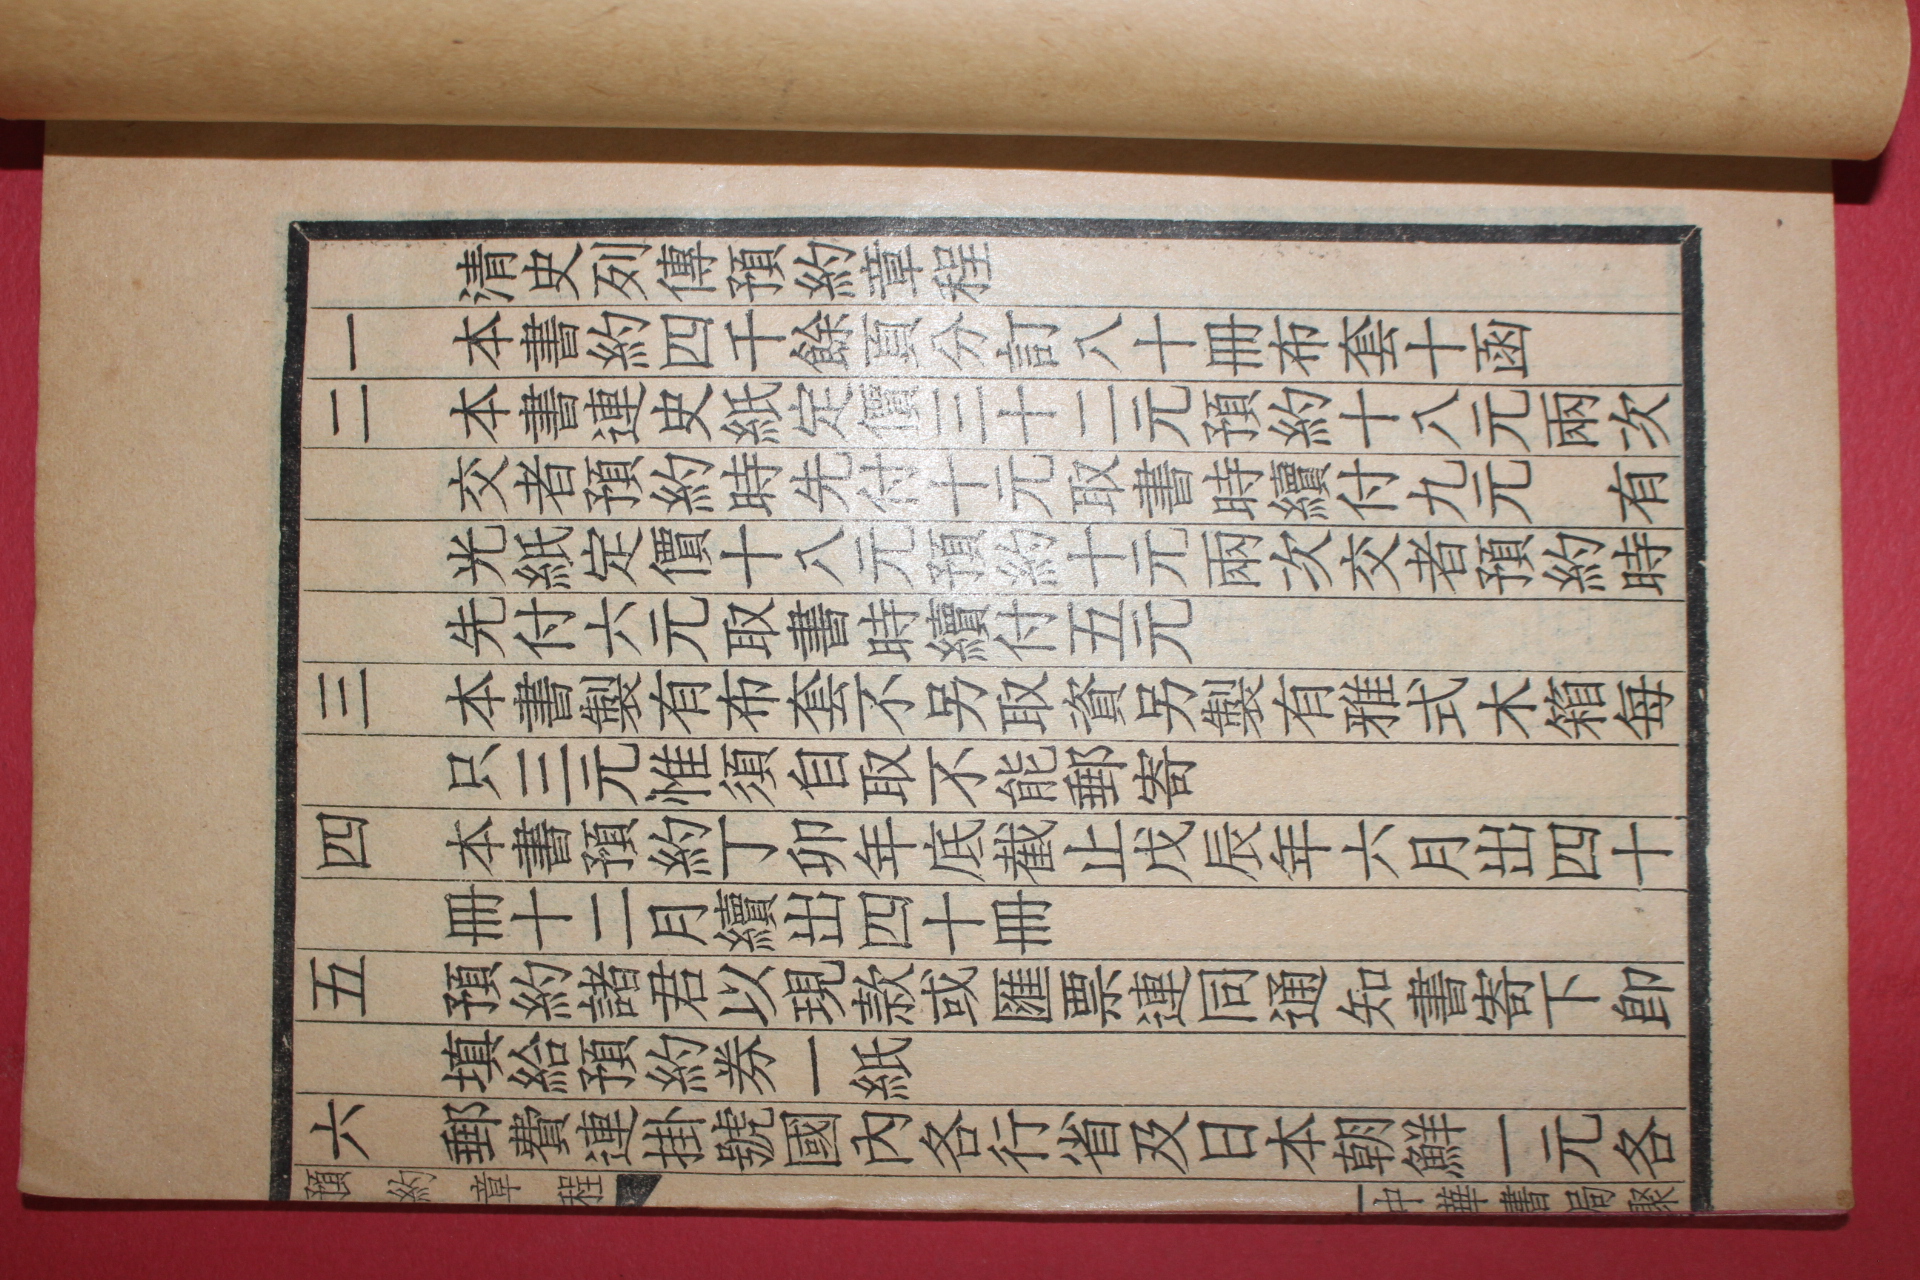 清史列傳預約章程
一 本書約四千餘頁分訂八十冊布套十函
二 本書連史紙定價三十二元預約十八元兩次
交者預約時先付十元取書時續付九元 有
光紙定價十八元預約十元兩次交者預約時
先付六元取書時續付五元
三 本書製有布套不另取資另製有雅式木箱每
只三元惟須自取不能郵寄
四 本書預約丁卯年底截止戊辰年六月出四十
冊十二月續出四十冊
五 預約諸君以現款或匯票連同通知書寄下即
填給預約券一紙
六 郵費連掛號國內各行省及日本朝鮮一元各
預約章程 一 中華書局聚